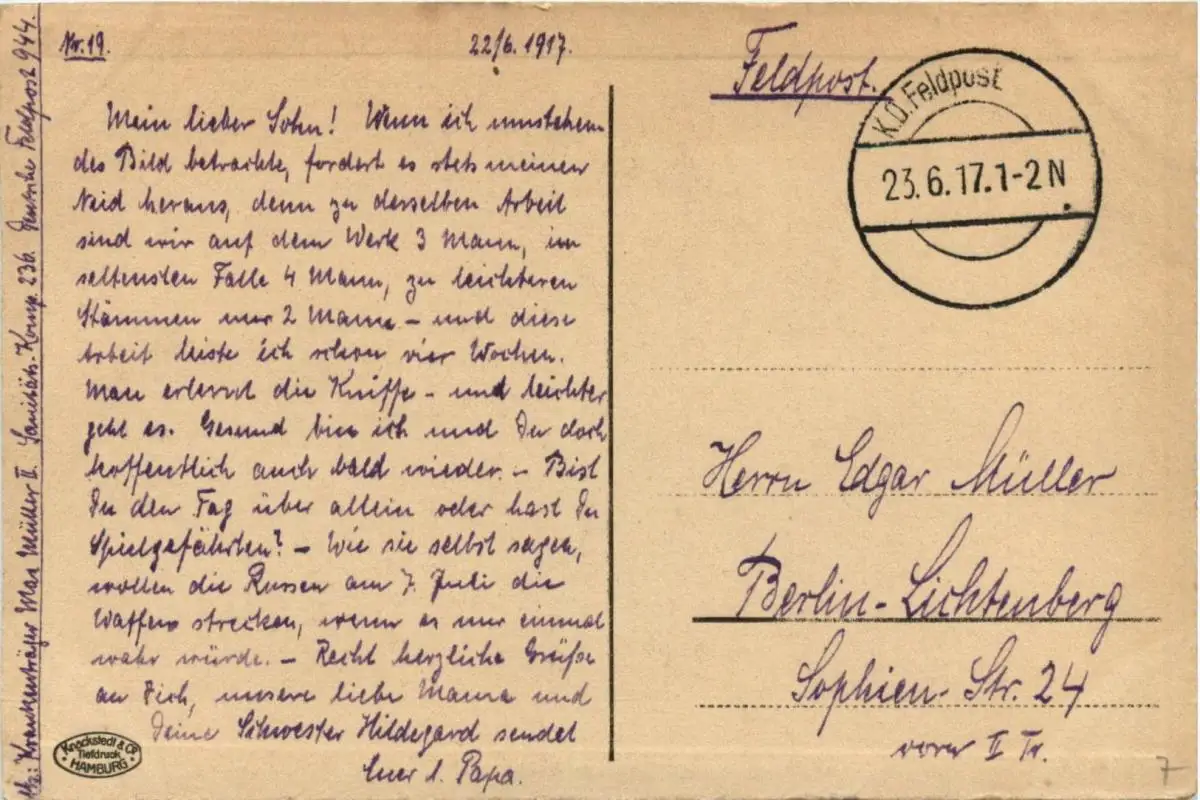 Nr. 19.
22/6. 1917.
Mein lieber Sohn! Wenn ich umstehen
des Bild betrachte, fordert es stets meinen
Neid heraus, denn zu derselben Arbeit
sind wir auf dem Werk 3 Mann, im
seltensten Falle 4 Mann, zu leichteren
Stämmen nur 2 Mann – und diese
Arbeit leiste ich schon vier Wochen.
Man erlernt die Kniffe – und leichter
geht es. Gesund bin ich und Du doch
hoffentlich auch bald wieder. – Bist
Du den Tag über allein oder hast Du
Spielgefährten? – Wie sie selbst sagen,
wollen die Russen am 7. Juli die
Waffen strecken, wenn es nur einmal
wahr würde. – Recht herzliche Grüße
an Dich, unsere liebe Mama und
Deine Schwester Hildegard sendet
Euer l. Papa.
Krankenträger Max Müller II. Sanitäts-Komp. 236. Deutsche Feldpost 944.
Knackstedt & Co
Tiefdruck
HAMBURG
Feldpost.
K.D. Feldpost
23.6.17.1-2N
Herrn Edgar Müller
Berlin-Lichtenberg
Sophien-Str. 24
vorn II Tr.
7